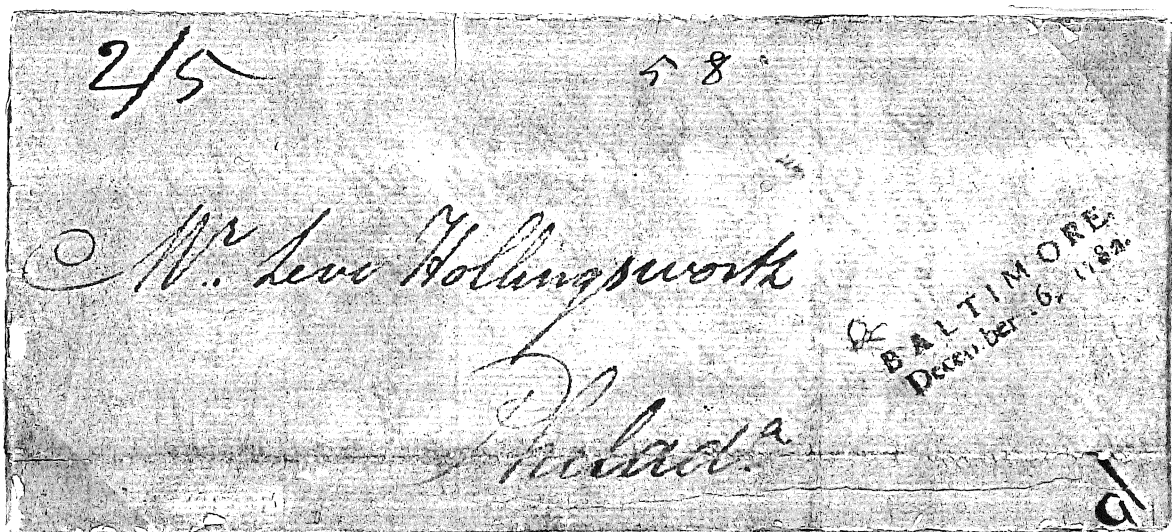 2/5
5 8
Mr. Levi Hollingsworth
Philad.a
BALTIMORE,
December 6, 1782.